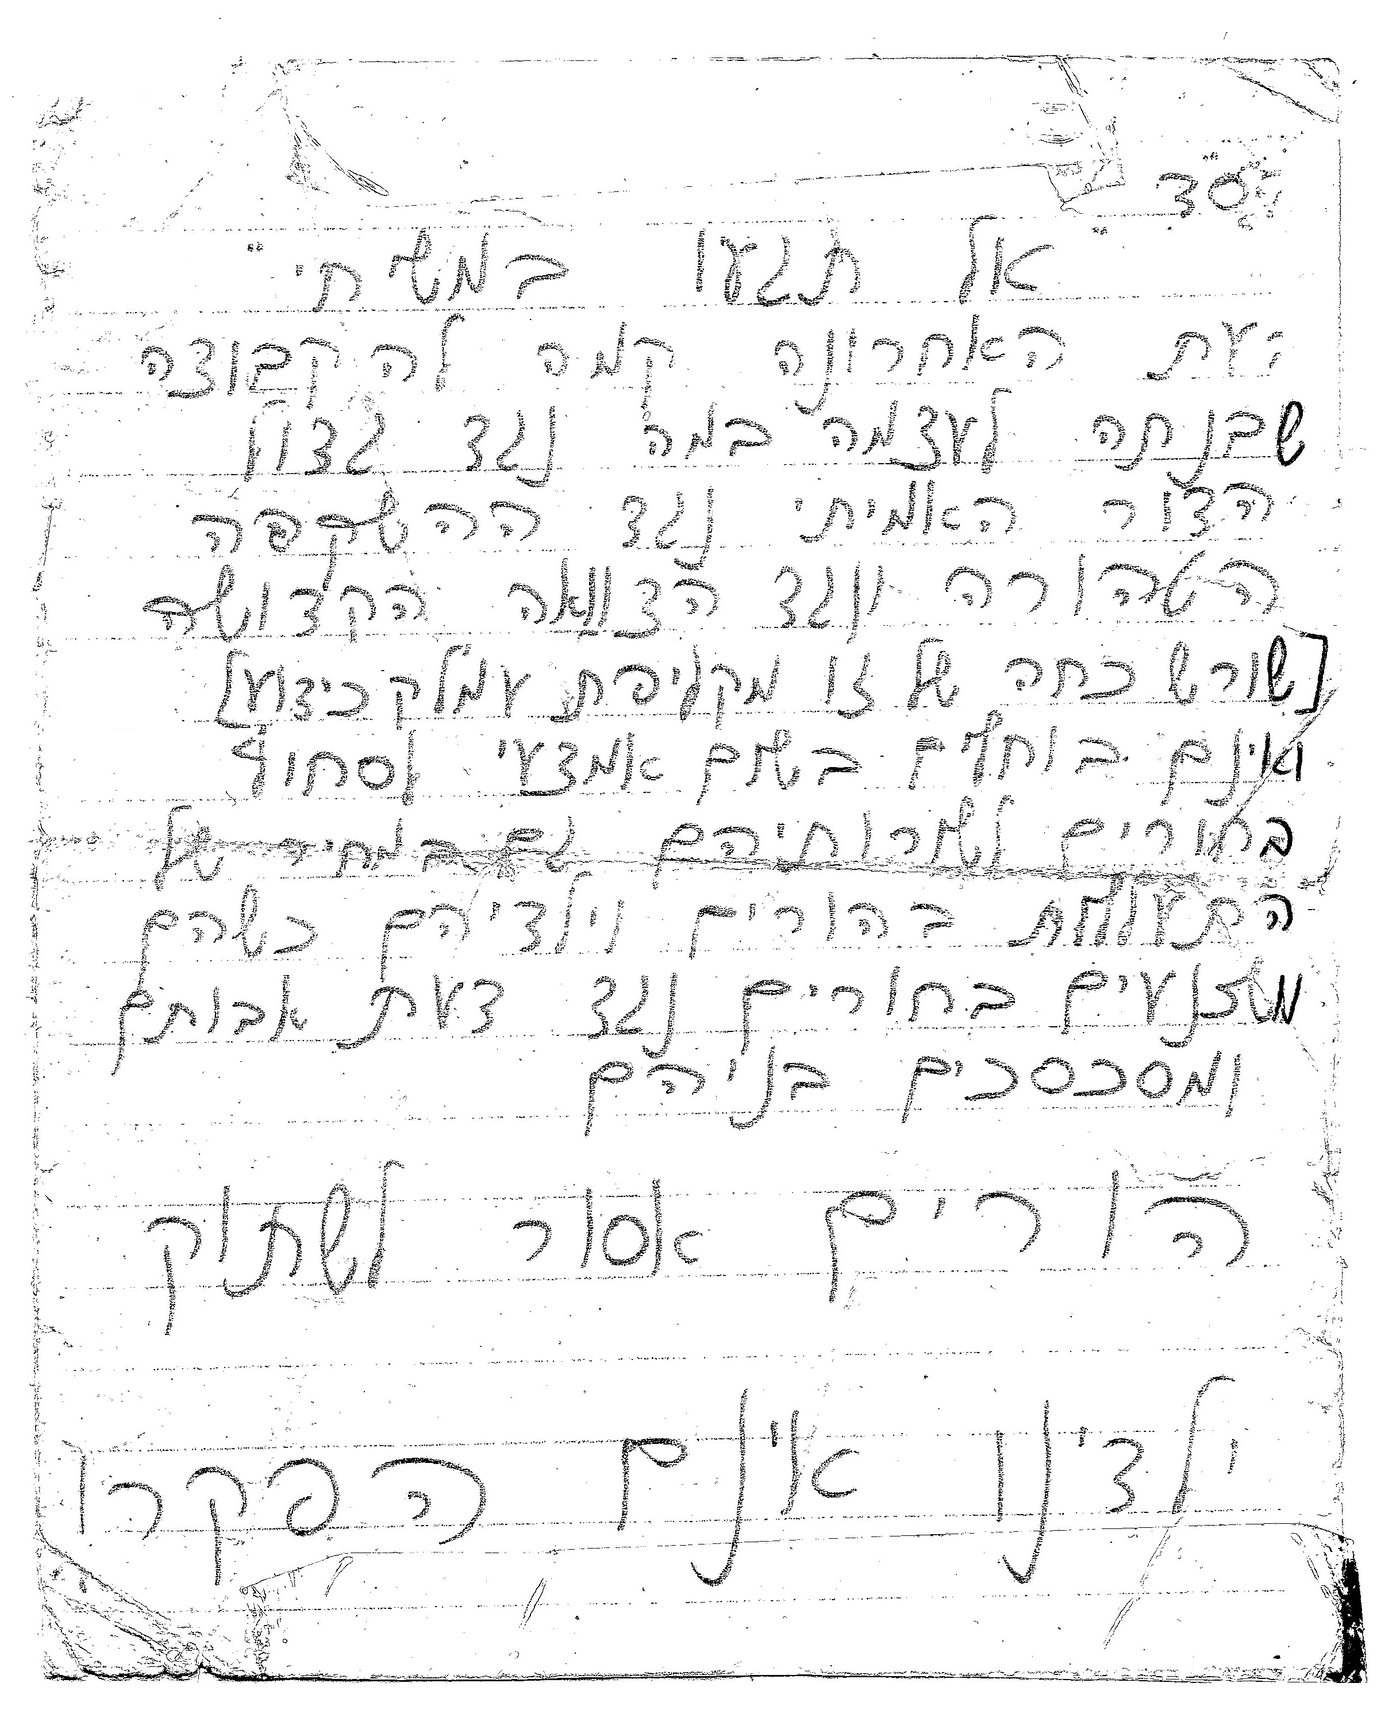 בס"ד
"אל תגעו במשיחי"
בעת האחרונה קמה לה קבוצה
שבנתה לעצמה במה נגד גדול
הדור האמיתי נגד ההשקפה
הטהורה ונגד הצוואה הקדושה
[שורש כחה של זו מקליפת עמלק כידוע]
ואינם בוחלים בשום אמצעי לסחוף
בחורים לשורותיהם גם במחיר של
התעללות בהורים וילדיהם כשהם
משכנעים בחורים נגד דעת אבותם
ומסכסכים בניהם
הורים אסור לשתוק
ילדינו אינם הפקר!